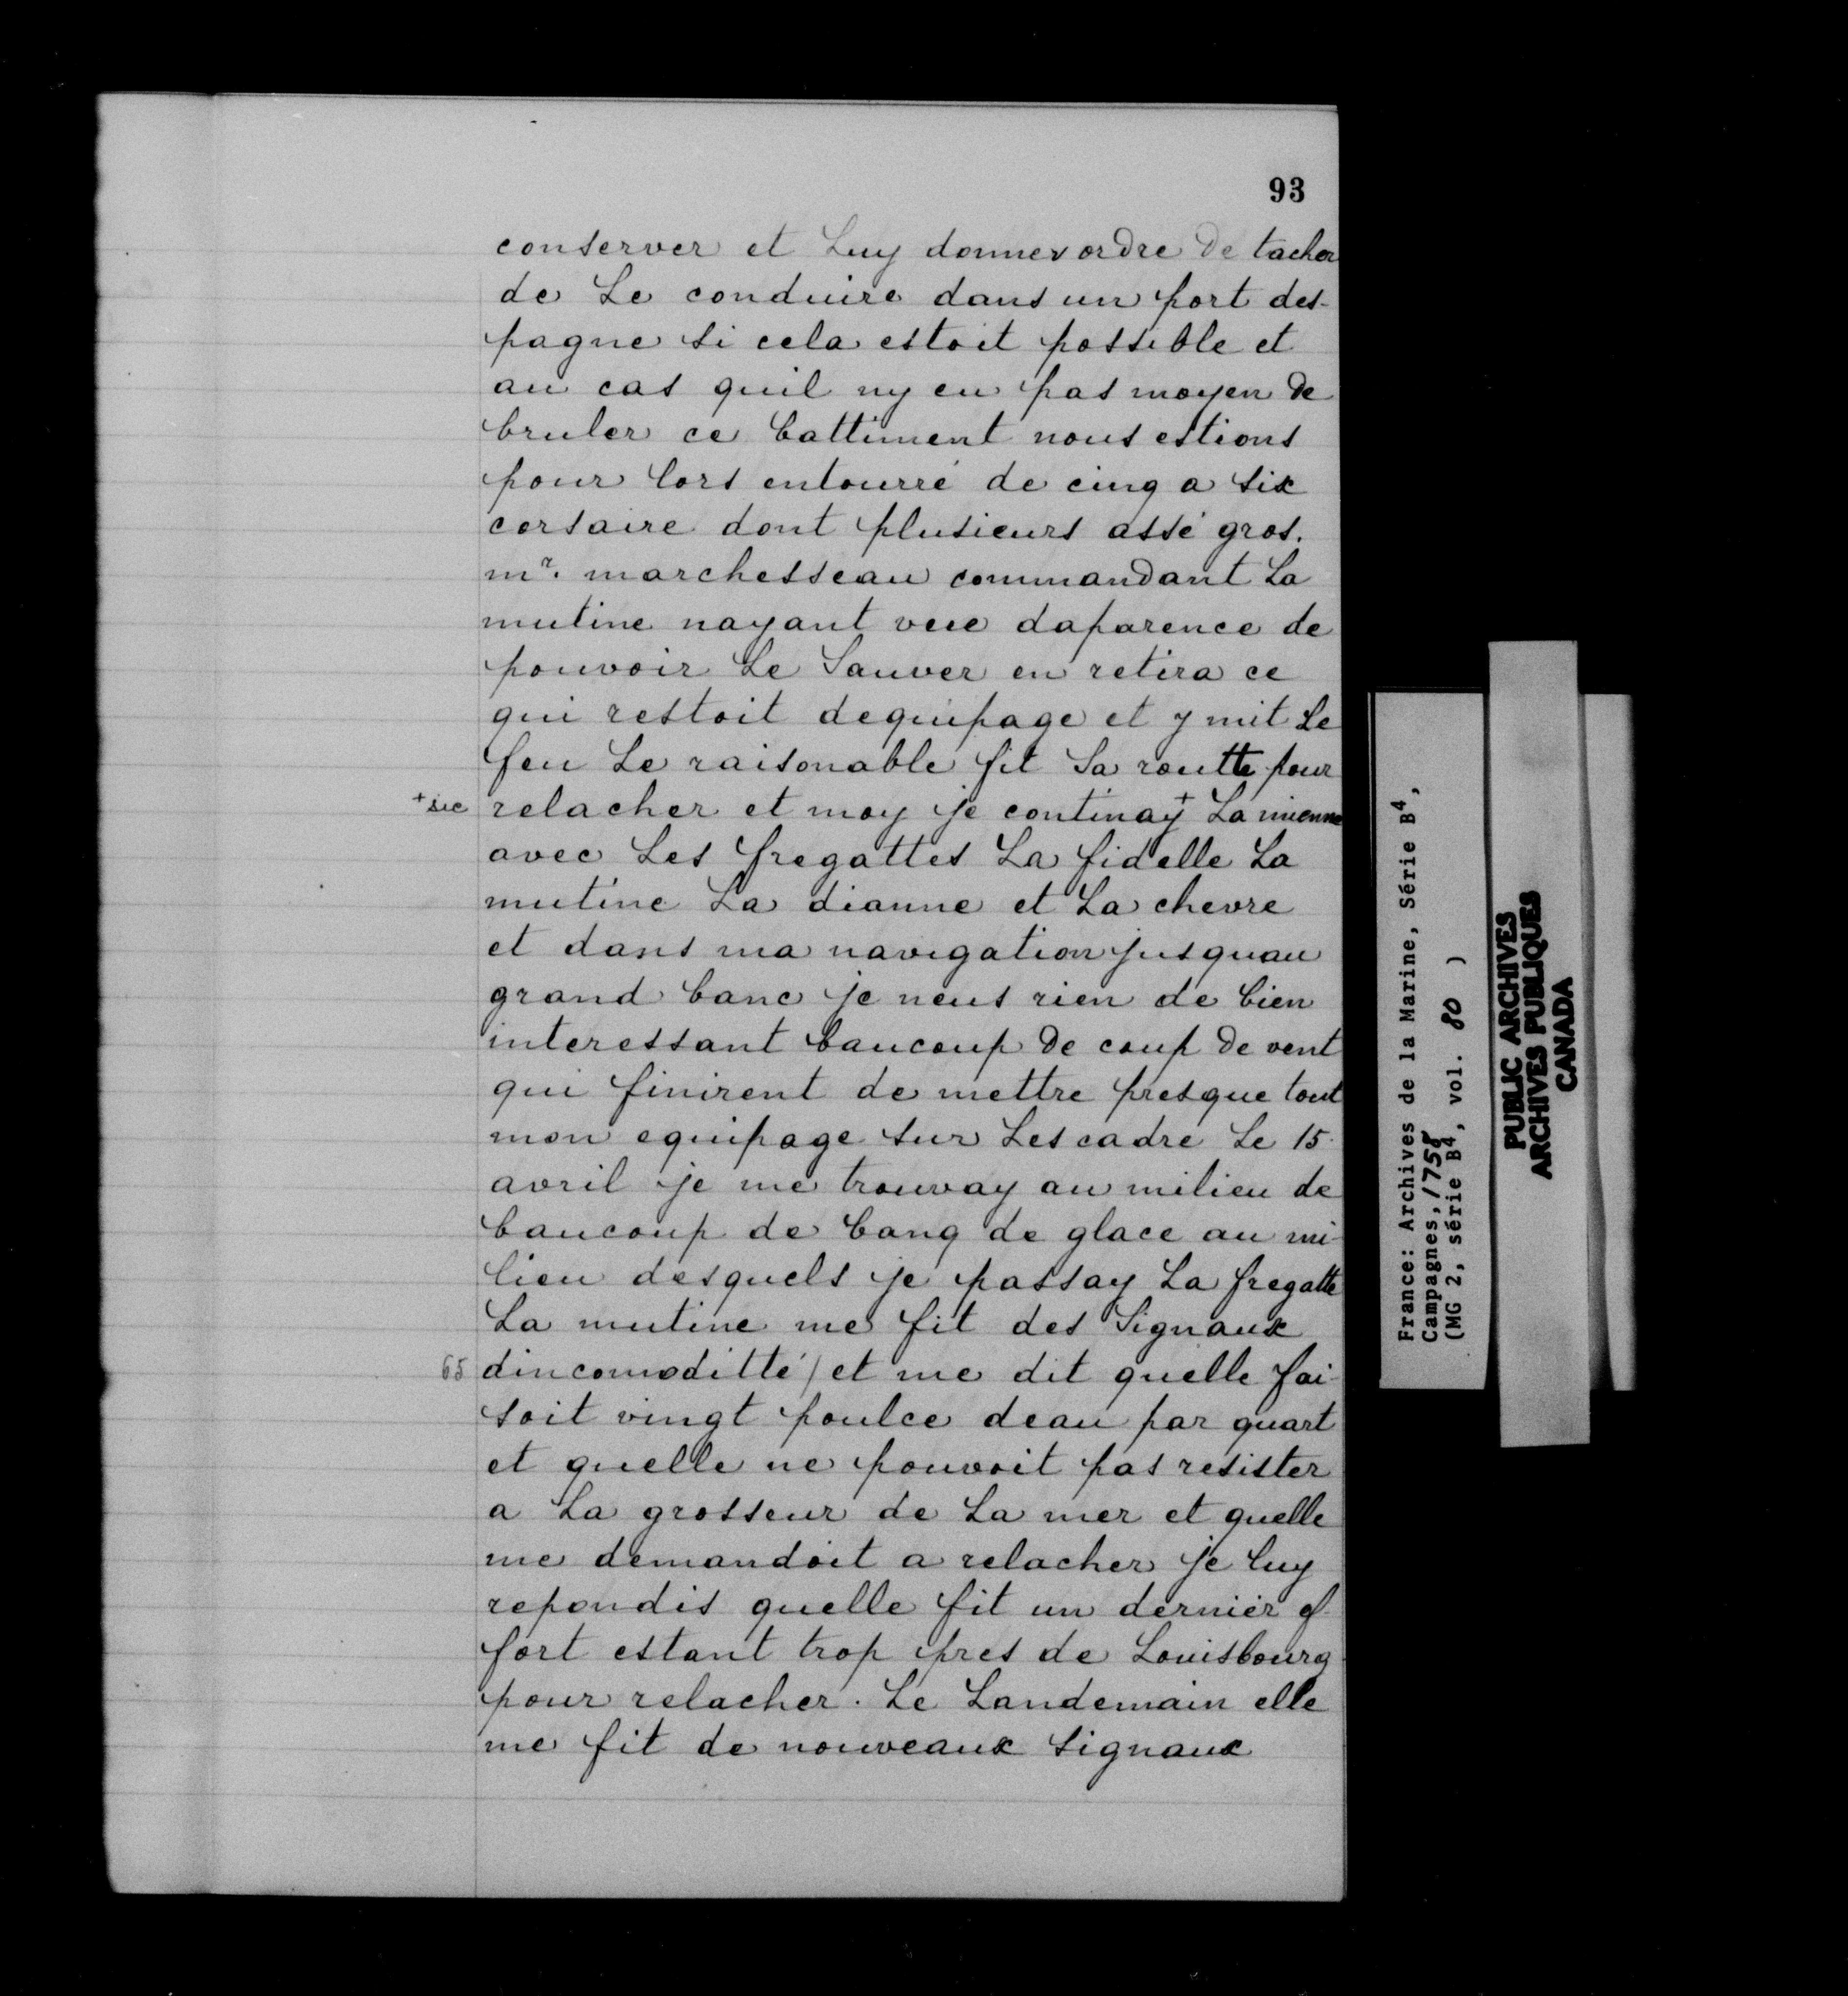 93
conserver et Luy donner ordre de tacher
de Le conduire dans un port des-
pagne si cela estoit possible et
au cas quil ny eu pas moyen de
bruler ce battiment nous estions
pour lors entourré de cinq a six
corsaire dont plusieurs assé gros.
mr. marchesseau commandant La
mutine nayant veue daparence de
pouvoir Le Sauver en retira ce
qui restoit dequipage et y mit Le
feu Le raisonable fit Sa routte pour
+ sic relacher et moy je continay + La mienne
avec Les fregattes La fidelle La
mutine La dianne et La chevre
et dans ma navigation jusquau
grand banc je neus rien de bien
interessant baucoup de coup de vent
qui finirent de mettre presque tout
mon equipage sur Les cadre Le 15
avril je me trouvay au milieu de
baucoup de banq de glace au mi-
lieu desquels je passay La fregatte
La mutine me fit des Signaux
65 dincomoditté / et me dit quelle fai-
soit vingt poulce deau par quart
et quelle ne pouvoit pas resister
a La grosseur de La mer et quelle
me demandoit a relacher je luy
repondis quelle fit un dernier ef-
fort estant trop pres de Louisbourg
pour relacher. Le Landemain elle
me fit de nouveaux signaux
France: Archives de la Marine, Série B4,
Campagnes, 1758
(MG 2, série B4, vol. 80 )
PUBLIC ARCHIVES
ARCHIVES PUBLIQUES
CANADA